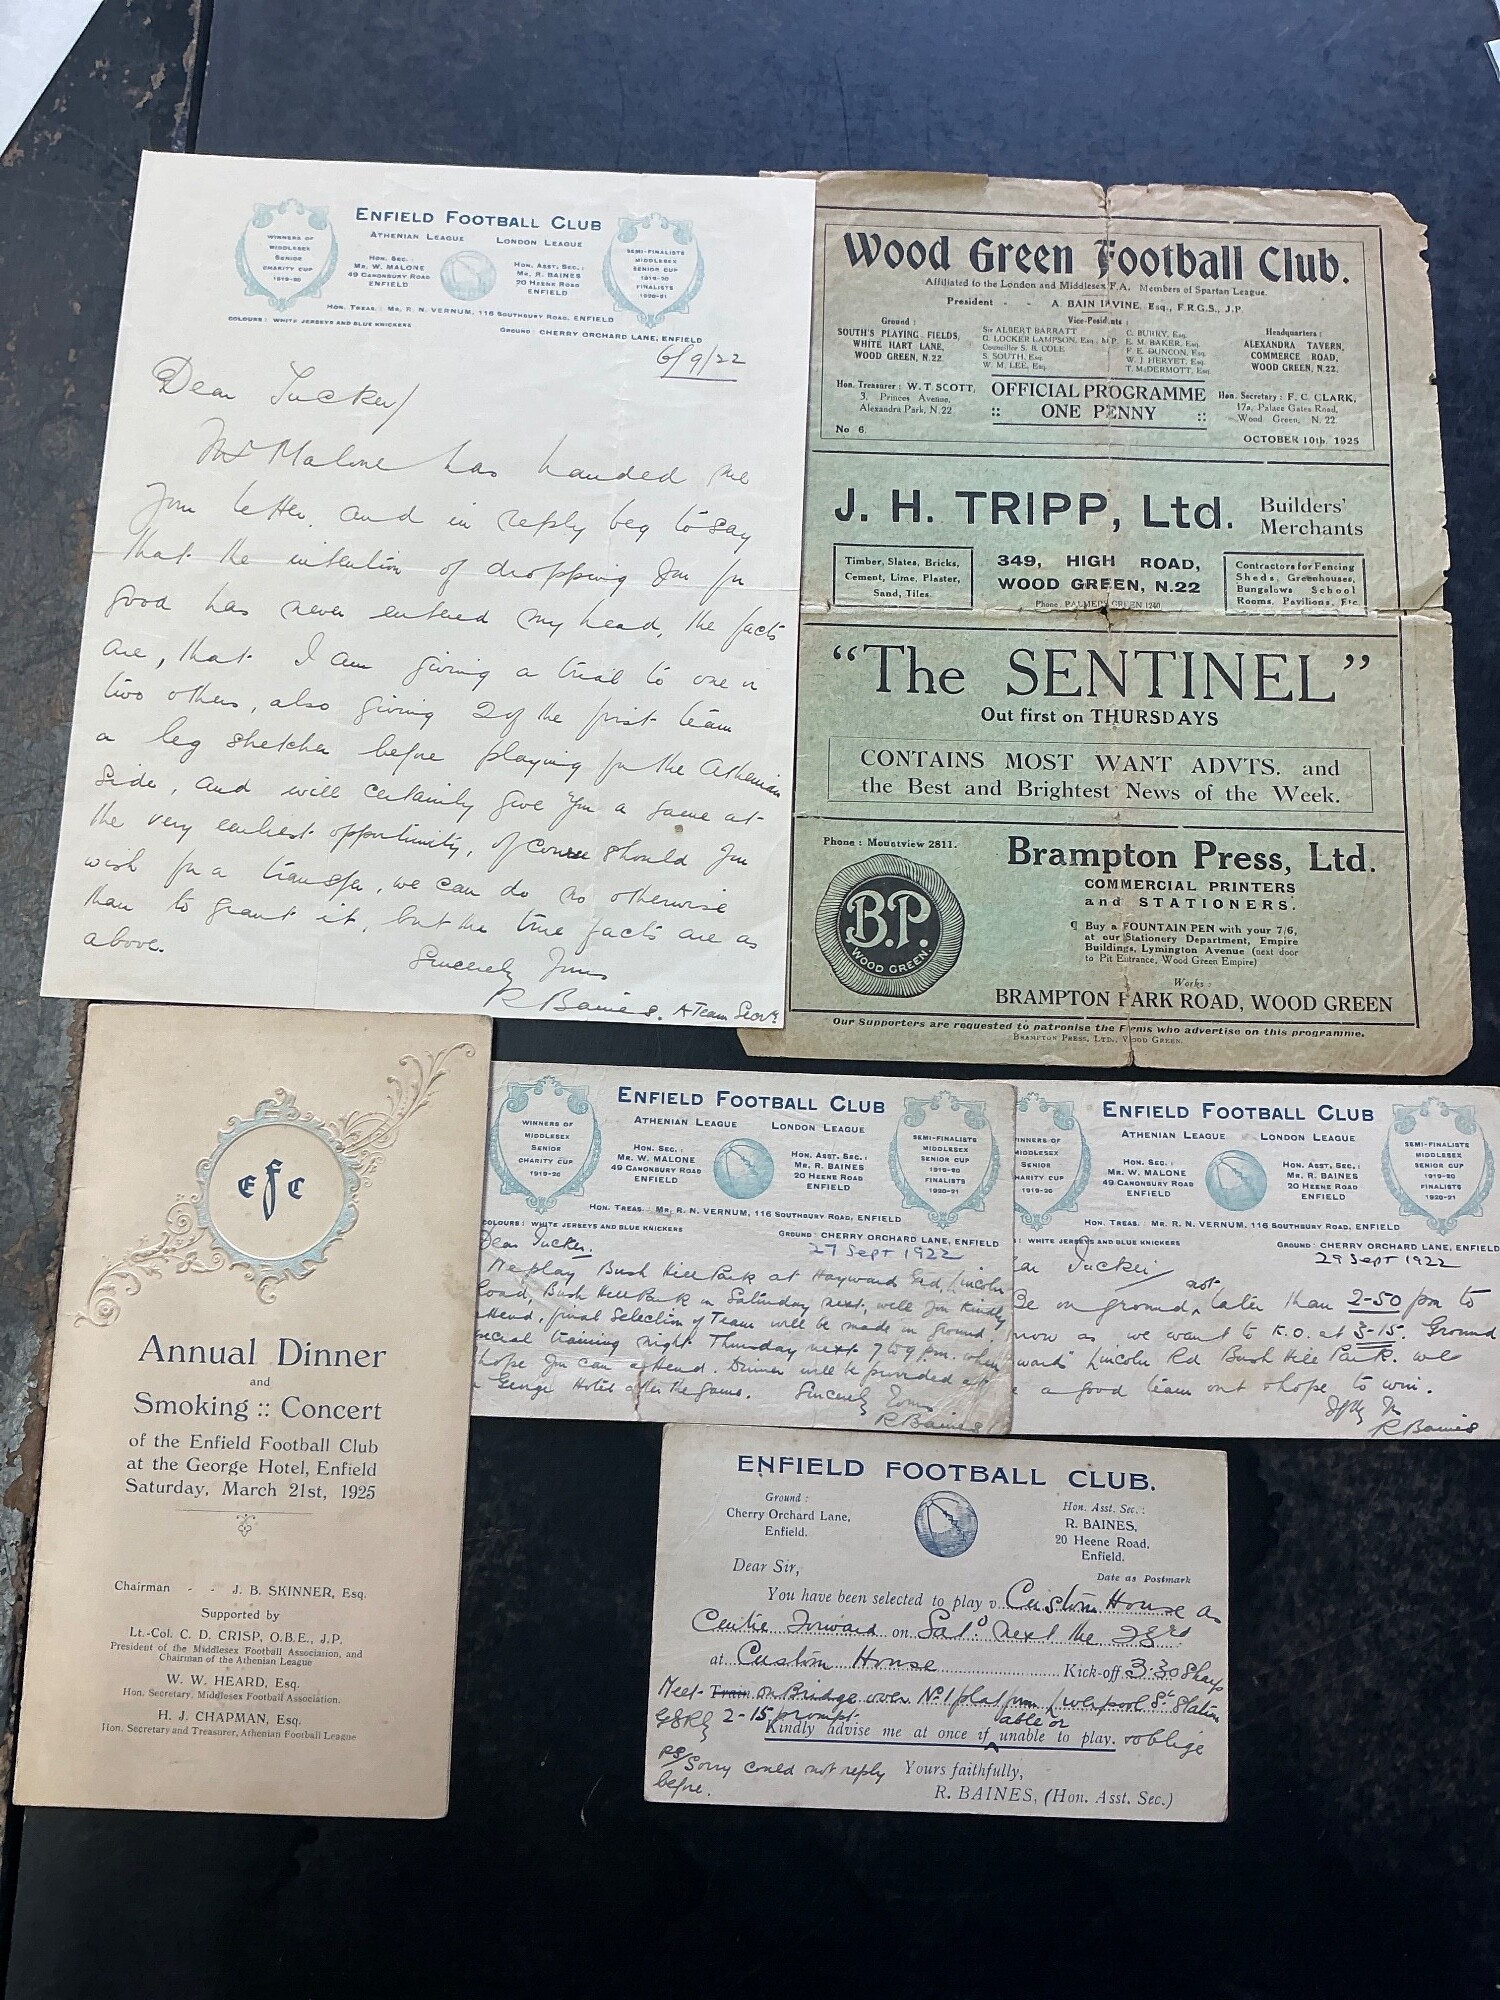 ENFIELD FOOTBALL CLUB
ATHENIAN LEAGUE LONDON LEAGUE
WINNERS OF
MIDDLESEX
SENIOR
CHARITY CUP
1919-20
HON. SEC. :
MR. W. MALONE
49 CANONBURY ROAD
ENFIELD
HON. ASST. SEC. :
MR. R. BAINES
20 HEENE ROAD
ENFIELD
SEMI-FINALISTS
MIDDLESEX
SENIOR CUP
1919-20
FINALISTS
1920-21
HON. TREAS.: MR. R. N. VERNUM, 116 SOUTHBURY ROAD, ENFIELD
COLOURS: WHITE JERSEYS AND BLUE KNICKERS
GROUND: CHERRY ORCHARD LANE, ENFIELD
6/9/22
Dear Tucker/
Mr Malone has handed me
your letter, and in reply beg to say
that the intention of dropping you for
good has never entered my head, the facts
are, that I am giving a trial to one or
two others, also giving 2 of the first team
a leg stretcher before playing for the Athenian
side, and will certainly give you a game at
the very earliest opportunity, of course should you
wish for a transfer, we can do no otherwise
than to grant it, but the true facts are as
above.
Sincerely Yours
R Baines. A Team Secy.
Wood Green Football Club.
Affiliated to the London and Middlesex F.A. Members of Spartan League.
President - - A. BAIN IRVINE, Esq., F.R.G.S., J.P.
Ground :
SOUTH'S PLAYING FIELDS,
WHITE HART LANE,
WOOD GREEN, N.22.
Vice-Presidents :
Sir ALBERT BARRATT
G. LOCKER LAMPSON, Esq., M.P.
Councillor S. B. COLE
S. SOUTH, Esq.
W. M. LEE, Esq.
C. BURRY, Esq.
E. M. BAKER, Esq.
F. E. DUNCON, Esq.
W. J. HERVEY, Esq.
T. McDERMOTT, Esq.
Headquarters :
ALEXANDRA TAVERN,
COMMERCE ROAD,
WOOD GREEN, N.22.
Hon. Treasurer : W. T. SCOTT,
3, Princes Avenue,
Alexandra Park, N.22
OFFICIAL PROGRAMME
:: ONE PENNY ::
Hon. Secretary : F. C. CLARK,
17a, Palace Gates Road,
Wood Green, N. 22.
No 6.
OCTOBER 10th, 1925
J. H. TRIPP, Ltd. Builders' Merchants
Timber, Slates, Bricks,
Cement, Lime, Plaster,
Sand, Tiles.
349, HIGH ROAD,
WOOD GREEN, N.22
Phone: PALMERS GREEN 1240.
Contractors for Fencing
Sheds, Greenhouses,
Bungalows School
Rooms, Pavilions, Etc.
"The SENTINEL"
Out first on THURSDAYS
CONTAINS MOST WANT ADVTS. and
the Best and Brightest News of the Week.
Phone : Mountview 2811.
B.P.
WOOD GREEN.
Brampton Press, Ltd.
COMMERCIAL PRINTERS
and STATIONERS.
¶ Buy a FOUNTAIN PEN with your 7/6,
at our Stationery Department, Empire
Buildings, Lymington Avenue (next door
to Pit Entrance, Wood Green Empire)
Works :
BRAMPTON PARK ROAD, WOOD GREEN
Our Supporters are requested to patronise the Firms who advertise on this programme.
BRAMPTON PRESS, LTD., WOOD GREEN.
E F C
Annual Dinner
and
Smoking :: Concert
of the Enfield Football Club
at the George Hotel, Enfield
Saturday, March 21st, 1925
Chairman - - J. B. SKINNER, Esq.
Supported by
Lt.-Col. C. D. CRISP, O.B.E., J.P.
President of the Middlesex Football Association, and
Chairman of the Athenian League
W. W. HEARD, Esq.
Hon. Secretary, Middlesex Football Association.
H. J. CHAPMAN, Esq.
Hon. Secretary and Treasurer, Athenian Football League
ENFIELD FOOTBALL CLUB
ATHENIAN LEAGUE LONDON LEAGUE
WINNERS OF
MIDDLESEX
SENIOR
CHARITY CUP
1919-20
HON. SEC. :
MR. W. MALONE
49 CANONBURY ROAD
ENFIELD
HON. ASST. SEC. :
MR. R. BAINES
20 HEENE ROAD
ENFIELD
SEMI-FINALISTS
MIDDLESEX
SENIOR CUP
1919-20
FINALISTS
1920-21
HON. TREAS. MR. R. N. VERNUM, 116 SOUTHBURY ROAD, ENFIELD
COLOURS: WHITE JERSEYS AND BLUE KNICKERS
GROUND: CHERRY ORCHARD LANE, ENFIELD
27 Sept 1922
Dear Tucker.
We play Bush Hill Park at Haywards Grd, Lincoln
Road, Bush Hill Park on Saturday next, will you kindly
attend, final selection of Team will be made on ground.
special training night Thursday next 7 to 9 p.m. when
hope you can attend. Dinner will be provided at
George Hotel after the game. Sincerely Yours
R Baines
ENFIELD FOOTBALL CLUB
ATHENIAN LEAGUE LONDON LEAGUE
WINNERS OF
MIDDLESEX
SENIOR
CHARITY CUP
1919-20
HON. SEC. :
MR. W. MALONE
49 CANONBURY ROAD
ENFIELD
HON. ASST. SEC. :
MR. R. BAINES
20 HEENE ROAD
ENFIELD
SEMI-FINALISTS
MIDDLESEX
SENIOR CUP
1919-20
FINALISTS
1920-21
HON. TREAS. MR. R. N. VERNUM, 116 SOUTHBURY ROAD, ENFIELD
: WHITE JERSEYS AND BLUE KNICKERS
GROUND: CHERRY ORCHARD LANE, ENFIELD
29 Sept 1922
Tucker/
Be on ground, not later than 2-50 pm to
as we want to K.O. at 3-15. Ground
Lincoln Rd Bush Hill Park. we
a good team out & hope to win.
R Baines
ENFIELD FOOTBALL CLUB.
Ground :
Cherry Orchard Lane,
Enfield.
Hon. Asst. Sec. :
R. BAINES,
20 Heene Road,
Enfield.
Date as Postmark
Dear Sir,
You have been selected to play v. Custom House as
Centre Forward on Satd next the 23rd
at Custom House Kick-off 3.30 Sharp
Meet Train on Bridge over No 1 platform Liverpool St Station
GERly 2-15 prompt.
Kindly advise me at once if able or unable to play. & oblige
PS/ Sorry could not reply
before.
Yours faithfully,
R. BAINES, (Hon. Asst. Sec.)